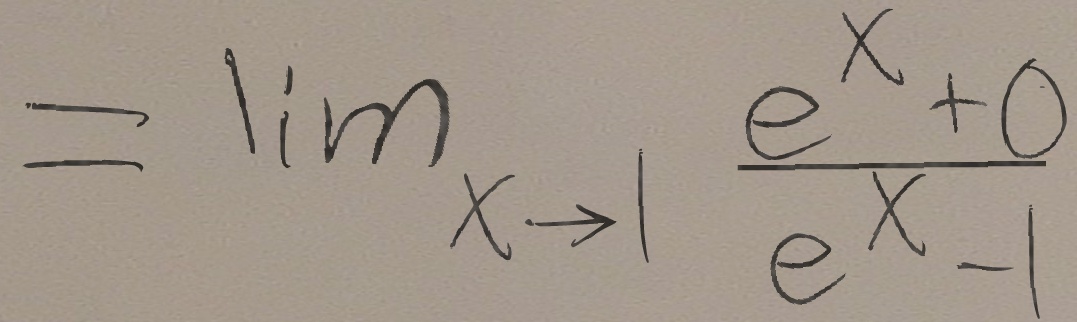 = lim x→1 (e^x + 0)/(e^x - 1)